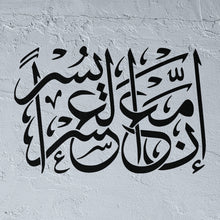 إنّ مع العسر يسراً